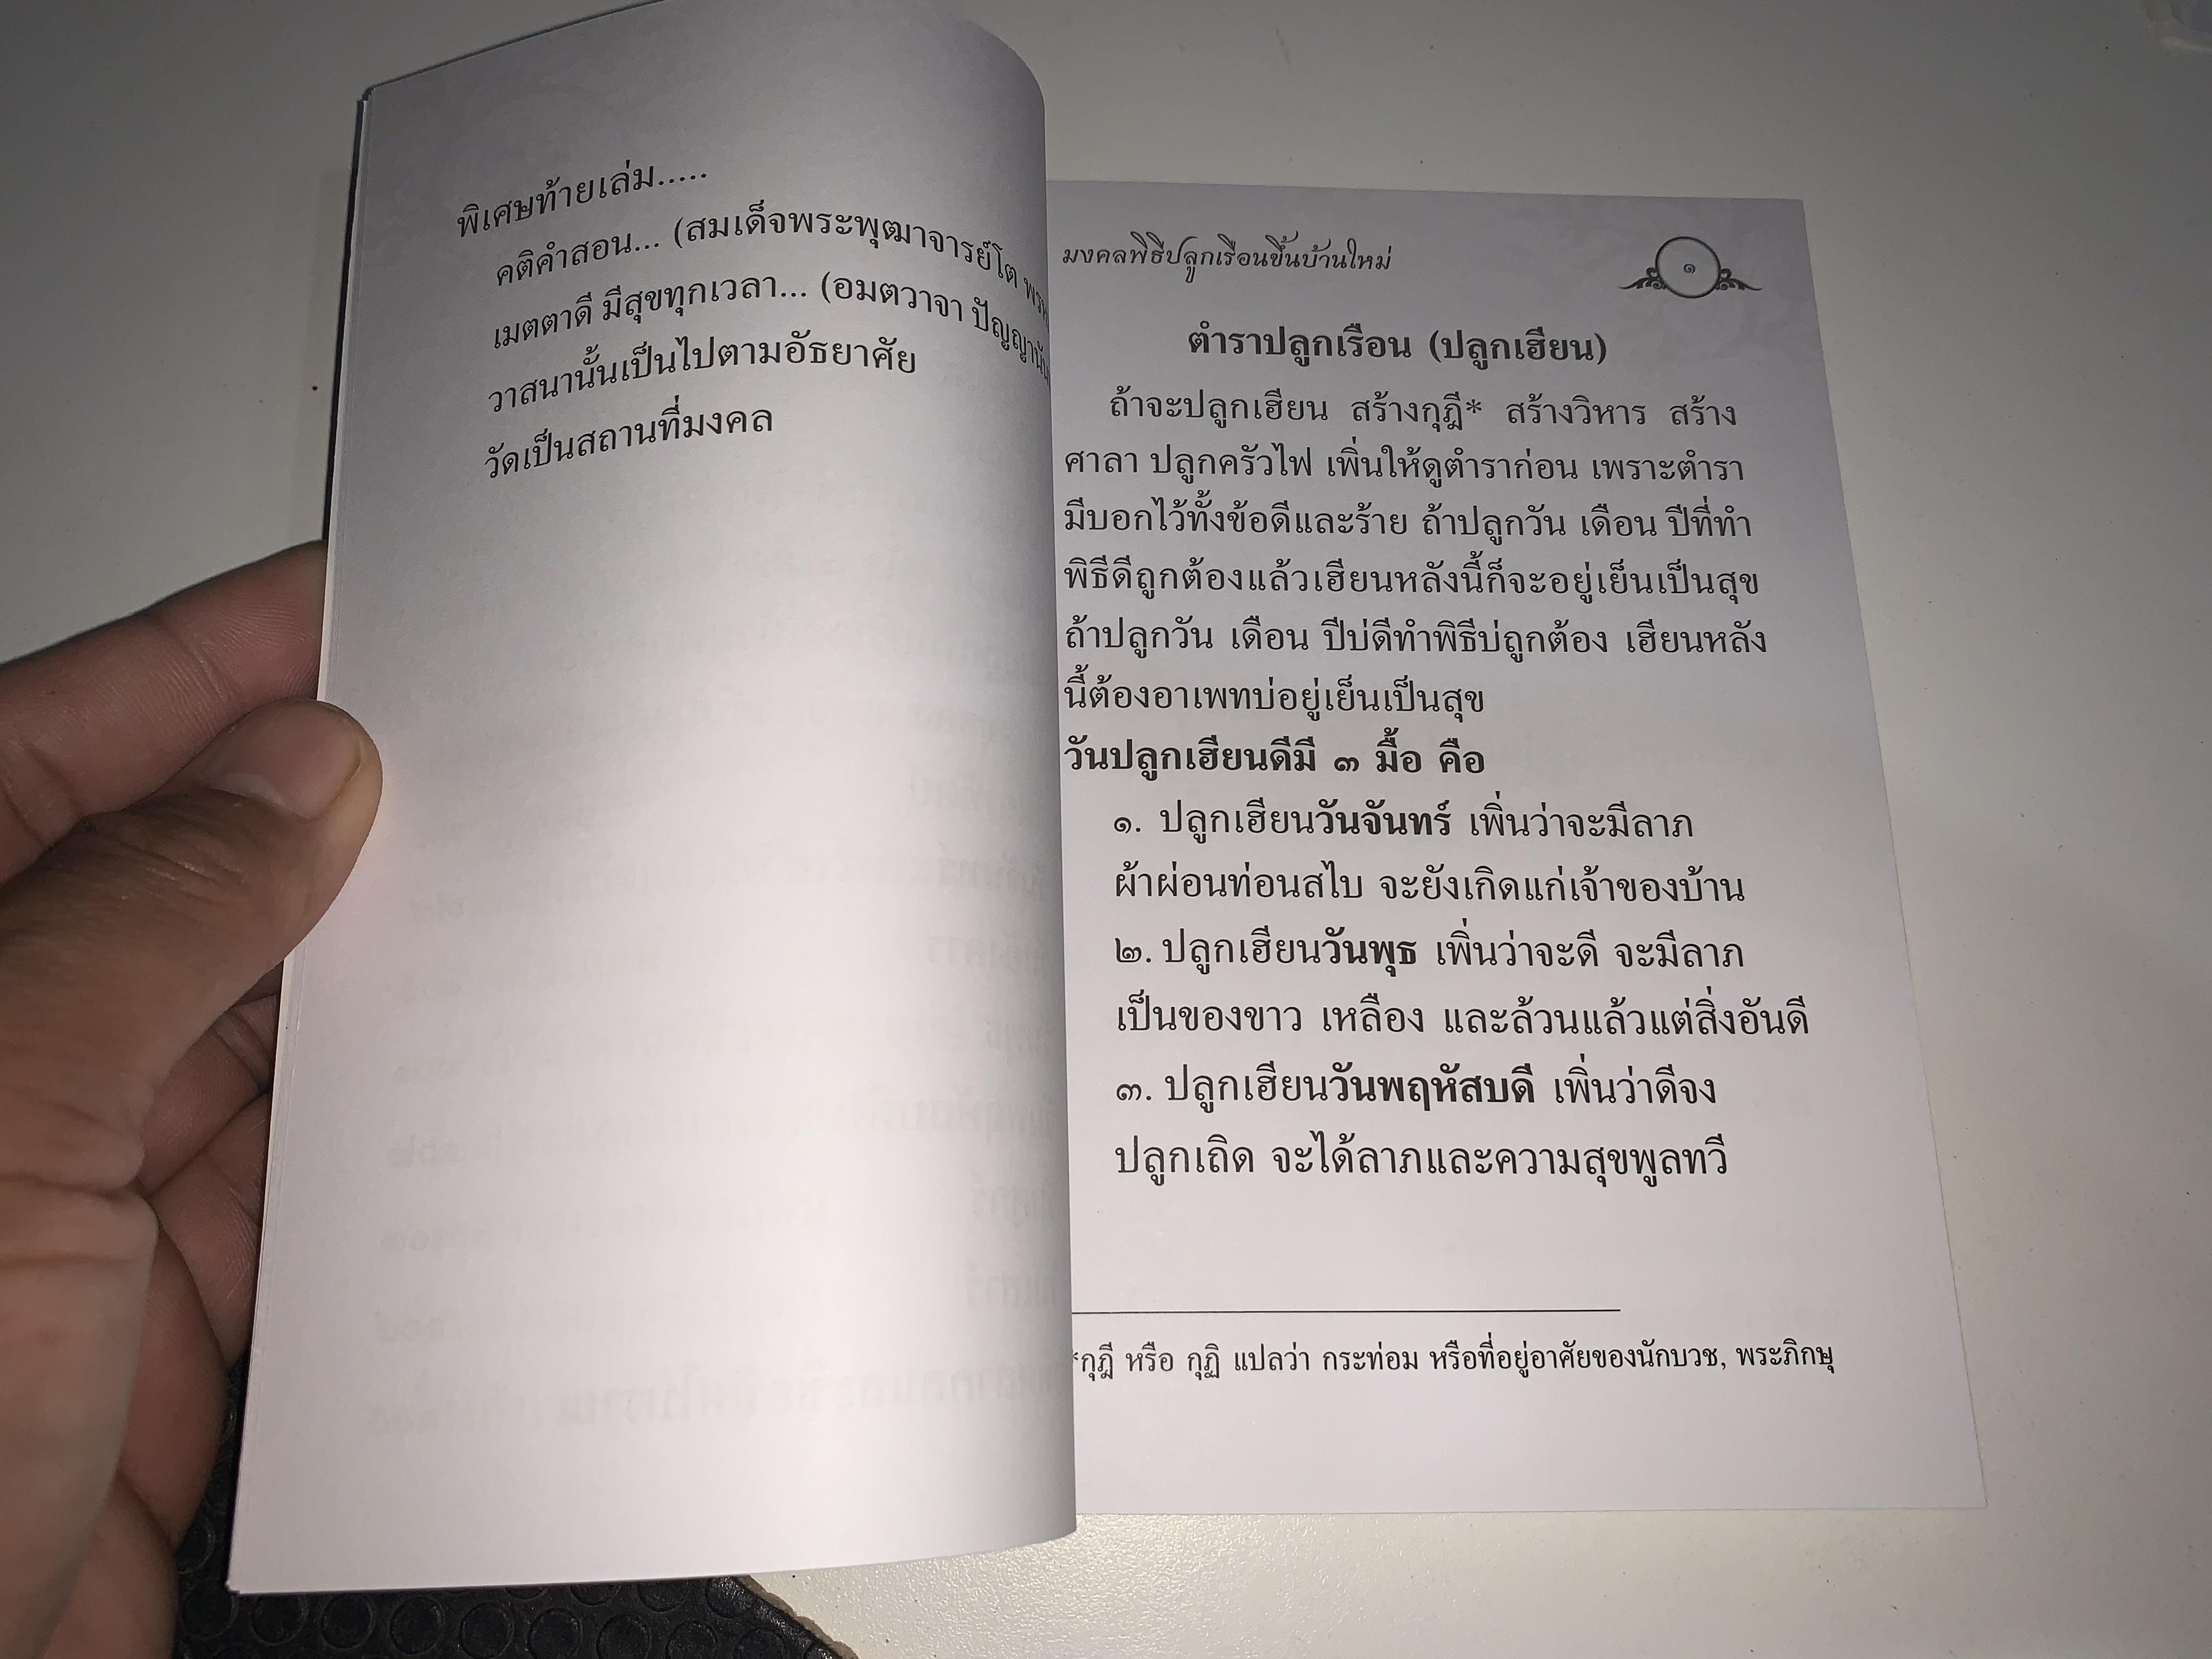 พิเศษท้ายเล่ม.....
คติคำสอน... (สมเด็จพระพุฒาจารย์โต
เมตตาดี มีสุขทุกเวลา... (อมตวาจา
วาสนานั้นเป็นไปตามอัธยาศัย
วัดเป็นสถานที่มงคล
มงคลพิธีปลูกเรือนขึ้นบ้านใหม่
๑
ตำราปลูกเรือน (ปลูกเฮียน)
ถ้าจะปลูกเฮียน สร้างกุฎี* สร้างวิหาร สร้าง
ศาลา ปลูกครัวไฟ เพิ่นให้ดูตำราก่อน เพราะตำรา
มีบอกไว้ทั้งข้อดีและร้าย ถ้าปลูกวัน เดือน ปีที่ทำ
พิธีดีถูกต้องแล้วเฮียนหลังนี้ก็จะอยู่เย็นเป็นสุข
ถ้าปลูกวัน เดือน ปีบ่ดีทำพิธีบ่ถูกต้อง เฮียนหลัง
นี้ต้องอาเพทบ่อยู่เย็นเป็นสุข
วันปลูกเฮียนดีมี ๓ มื้อ คือ
๑. ปลูกเฮียนวันจันทร์ เพิ่นว่าจะมีลาภ
ผ้าผ่อนท่อนสไบ จะยังเกิดแก่เจ้าของบ้าน
๒. ปลูกเฮียนวันพุธ เพิ่นว่าจะดี จะมีลาภ
เป็นของขาว เหลือง และล้วนแล้วแต่สิ่งอันดี
๓. ปลูกเฮียนวันพฤหัสบดี เพิ่นว่าดีจง
ปลูกเถิด จะได้ลาภและความสุขพูลทวี
*กุฎี หรือ กุฏิ แปลว่า กระท่อม หรือที่อยู่อาศัยของนักบวช, พระภิกษุ